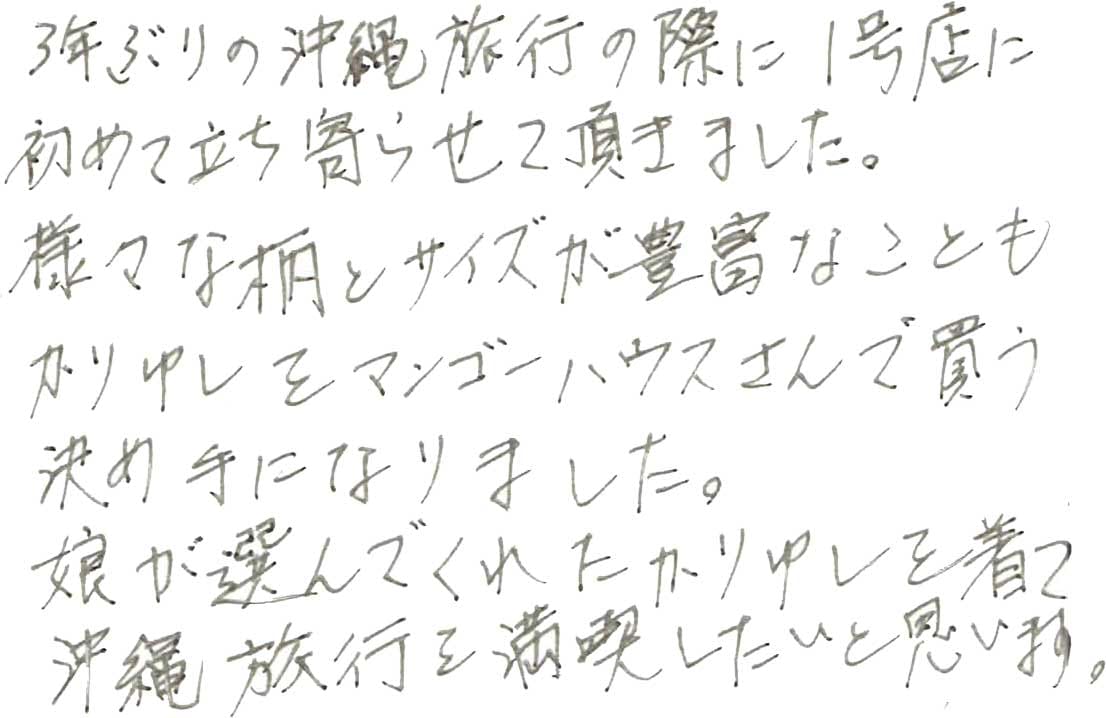 3年ぶりの沖縄旅行の際に1号店に
初めて立ち寄らせて頂きました。
様々な柄とサイズが豊富なことも
かりゆしをマンゴーハウスさんで買う
決め手になりました。
娘が選んでくれたかりゆしを着て
沖縄旅行を満喫したいと思います。